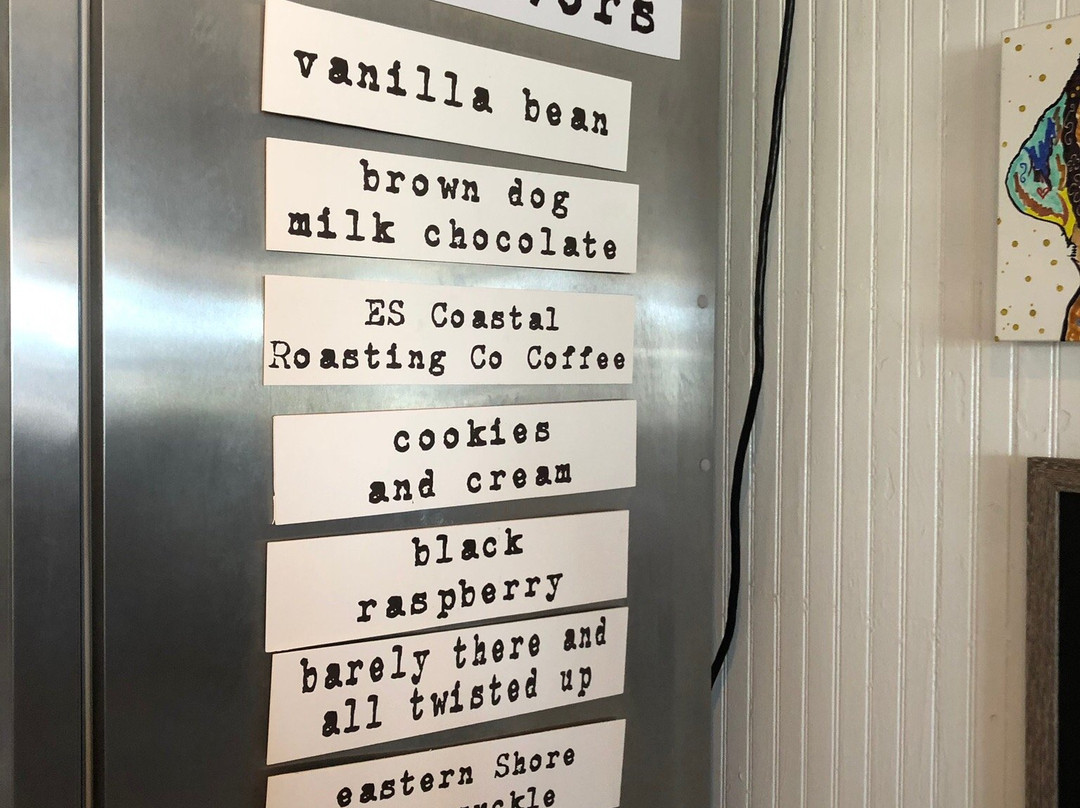 vanilla bean
brown dog
milk chocolate
ES Coastal
Roasting Co Coffee
cookies
and cream
black
raspberry
barely there and
all twisted up
eastern Shore